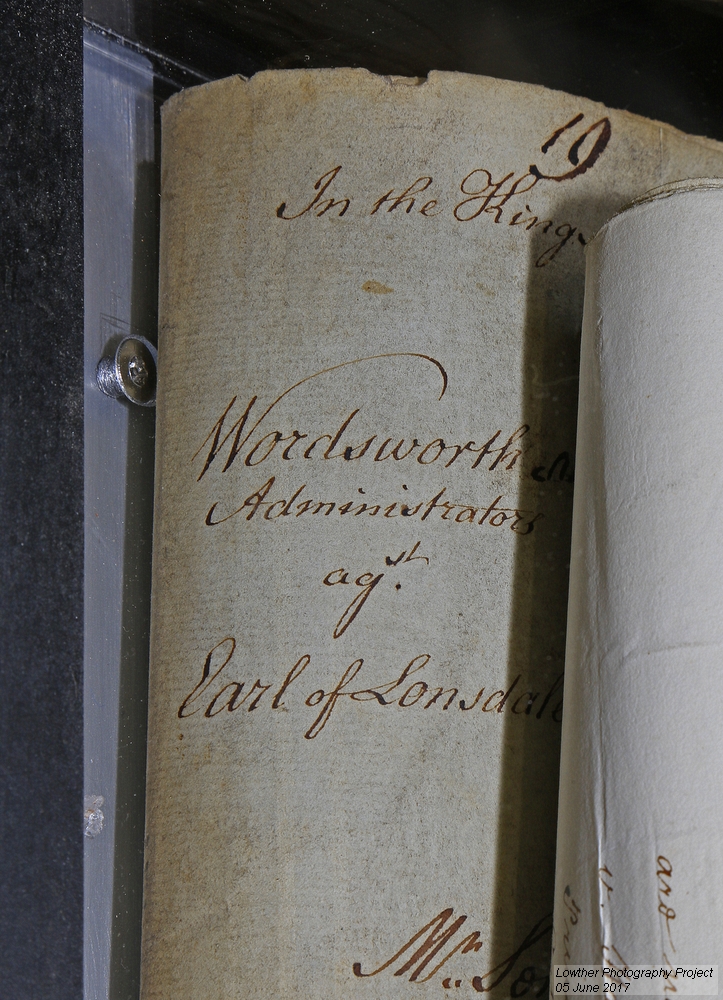 19
In the Kings
Wordsworth
Administrators
agst.
Earl of Lonsdale
Mr.
and
Lowther Photography Project
05 June 2017